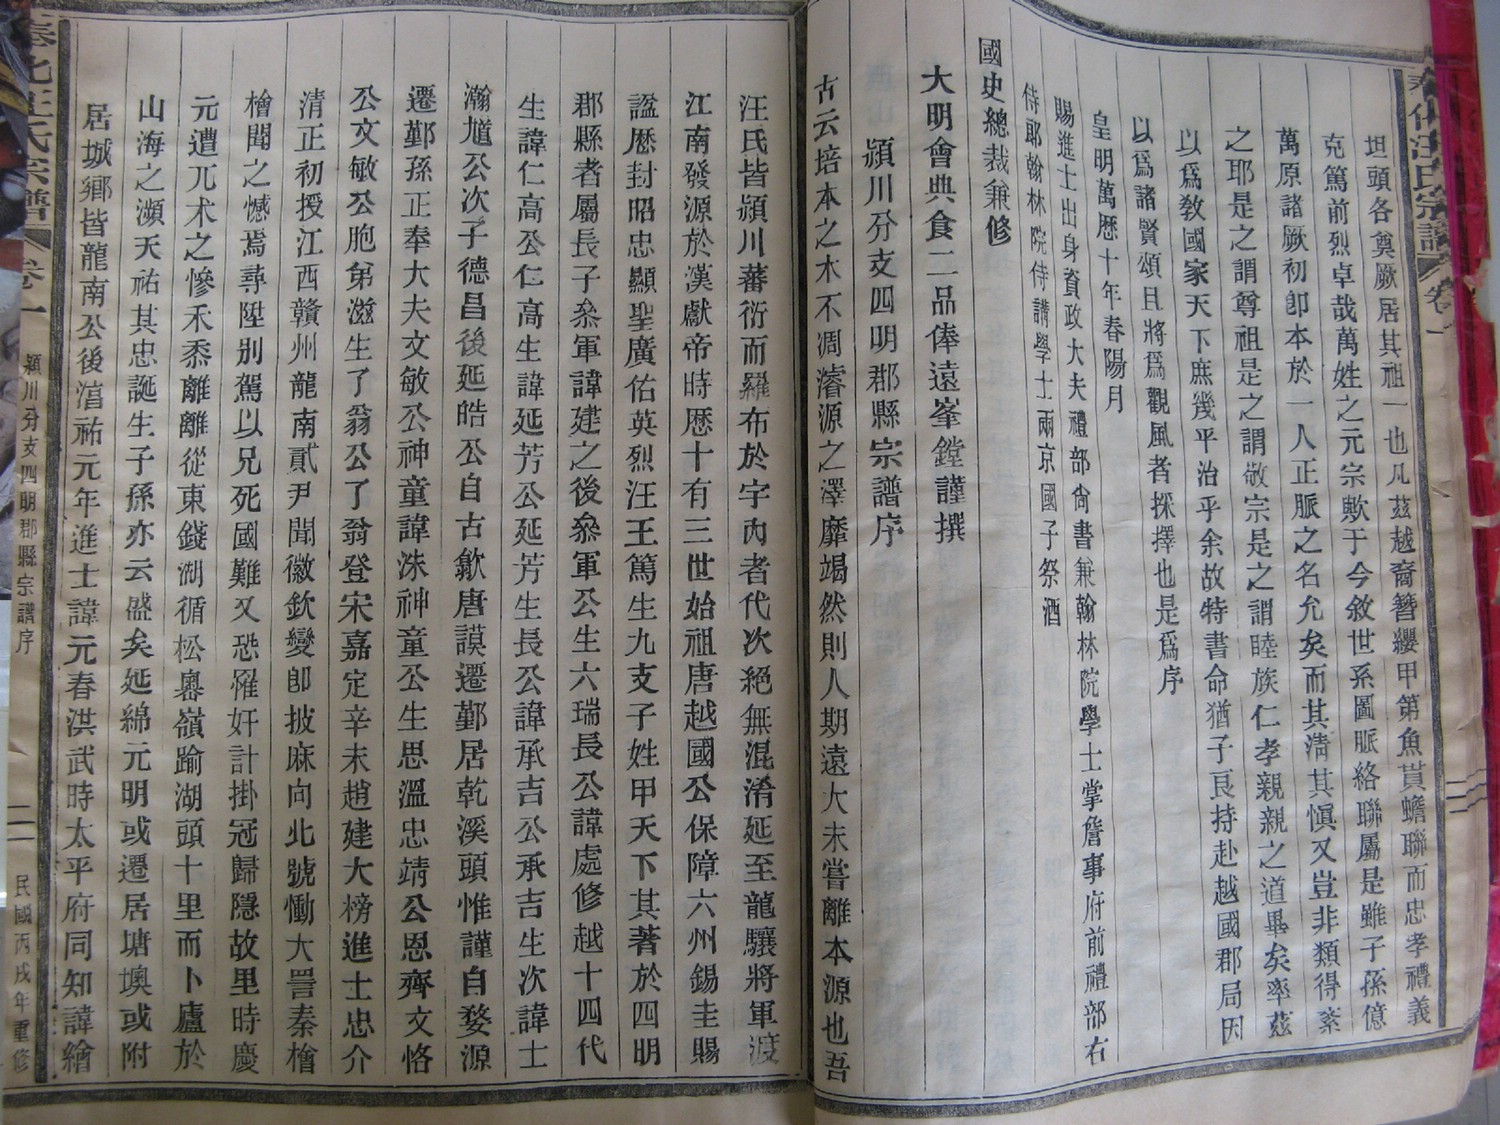 坦頭各奠厥居其祖一也凡茲越裔簪纓甲第魚貫蟾聯而忠孝禮義
克篤前烈卓哉萬姓之元宗歟于今敘世系圖脈絡聯屬是雖子孫億
萬原諸厥初卽本於一人正脈之名允矣而其淸其愼又豈非類得紊
之耶是之謂尊祖是之謂敬宗是之謂睦族仁孝親親之道畢矣率茲
以爲敎國家天下庶幾平治乎余故特書命猶子良持赴越國郡局因
以爲諸賢頌且將爲觀風者採擇也是爲序
皇明萬歷十年春陽月
賜進士出身資政大夫禮部尙書兼翰林院學士掌詹事府前禮部右
侍耶翰林院侍講學士兩京國子祭酒
國史總裁兼修
大明會典食二品俸遠峯鏜謹撰
潁川分支四明郡縣宗譜序
古云培本之木不凋濬源之澤靡竭然則人期遠大未嘗離本源也吾
汪氏皆潁川蕃衍而羅布於宇內者代次絕無混淆延至龍驤將軍渡
江南發源於漢獻帝時歷十有三世始祖唐越國公保障六州錫圭賜
謚歷封昭忠顯聖廣佑英烈汪王篤生九支子姓甲天下其著於四明
郡縣者屬長子叅軍諱建之後叅軍公生六瑞長公諱處修越十四代
生諱仁高公仁高生諱延芳公延芳生長公諱承吉公承吉生次諱士
瀚尷公次子德昌後延皓公自古歙唐謨遷鄞居乾溪頭惟謹自婺源
遷鄞孫正奉大夫文敏公神童諱洙神童公生思溫忠靖公恩齊文恪
公文敏公胞弟滋生了翁公了翁登宋嘉定辛未趙建大榜進士忠介
清正初授江西贛州龍南貳尹聞徽欽變卽披麻向北號慟大詈秦檜
檜聞之憾焉尋陞別駕以兄死國難又恐罹奸計掛冠歸隱故里時慶
元遭兀术之慘禾黍離離從東錢湖循松嶴嶺踰湖頭十里而卜廬於
山海之瀕天祐其忠誕生子孫亦云盛矣延綿元明或遷居塘墺或附
居城鄉皆龍南公後湻祐元年進士諱元春洪武時太平府同知諱繪
奉化汪氏宗譜 卷一 潁川分支四明郡縣宗譜序 二 民國丙戌年重修